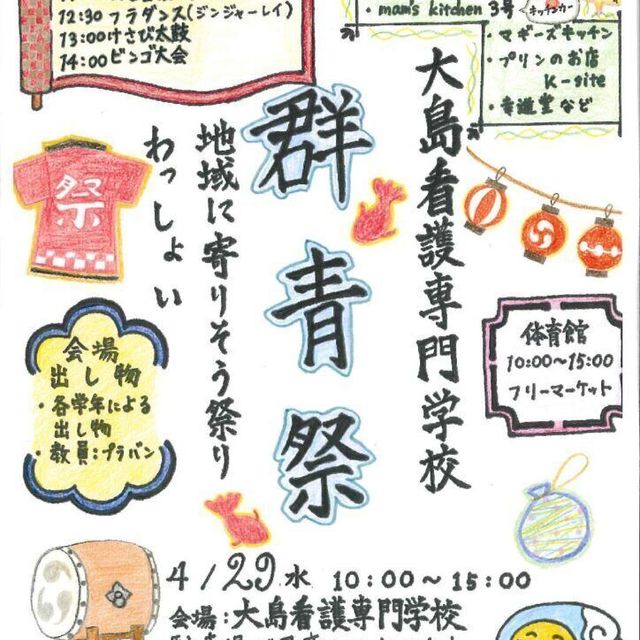 12:30 フラダンス(ジンジャーレイ)
13:00 けさび太鼓
14:00 ビンゴ大会
・mam's kitchen 3号
キッチンカー
・マギーズキッチン
・プリンのお店
K-site
・幸進堂など
大島看護専門学校
群青祭
地域に寄りそう祭り
わっしょい
祭
体育館
10:00～15:00
フリーマーケット
会場
出し物
・各学年による
出し物
・教員:プラバン
4/29 水 10:00～15:00
会場:大島看護専門学校